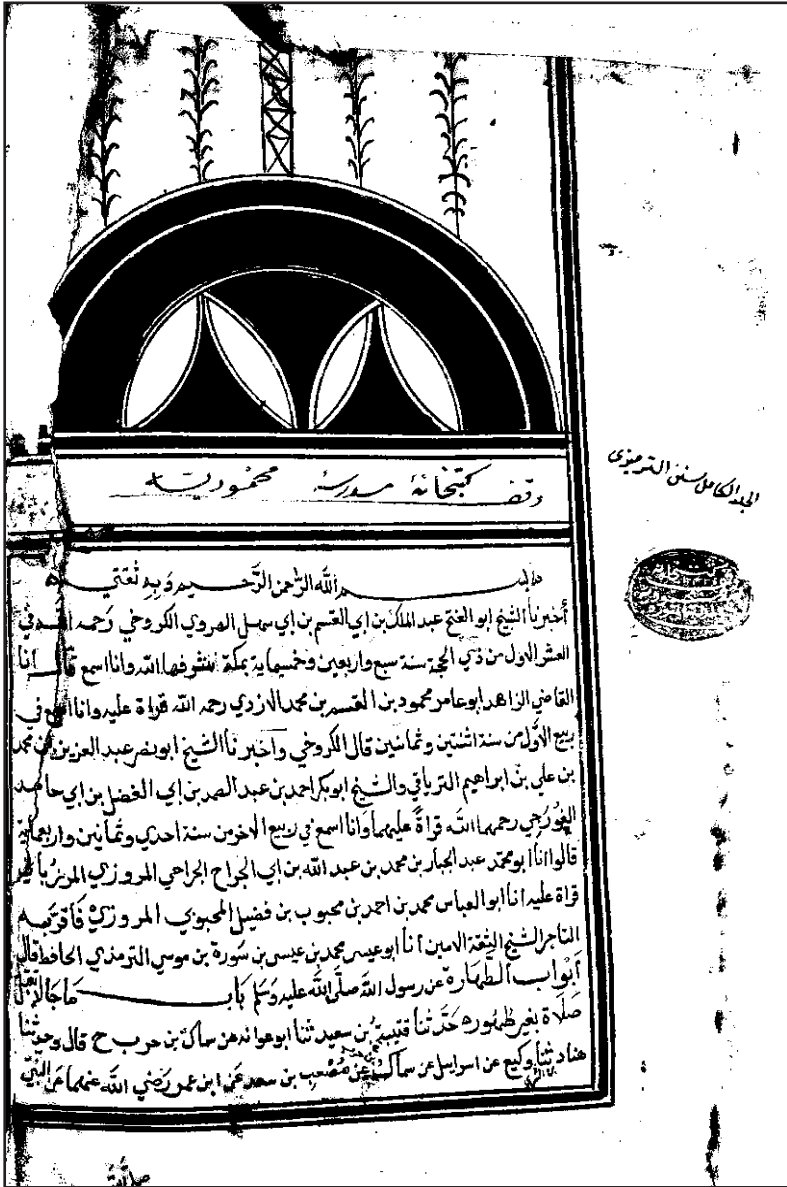 وقف كتبخانهٔ مدرسهٔ محموديه
الجلد الكامل سنن الترميزى
بسم الله الرحمن الرحيم وبه ثقتي
أخبرنا الشيخ ابو الفتح عبد الملك بن ابي القسم بن ابي سهل الهروي الكروخي رحمه الله في
العشر الاول من ذي الحجة سنة سبع واربعين وخمسماية بمكة شرفها الله وانا اسمع قال أنا
القاضي الزاهد ابو عامر محمود بن القسم بن محمد الازدي رحمه الله قراة عليه وانا اسمع في
ربيع الاول من سنة اثنتين وثمانين قال الكروخي واخبرنا الشيخ ابو نصر عبد العزيز بن محمد
بن علي بن ابراهيم الترياقي والشيخ ابو بكر احمد بن عبد الصمد بن ابي الفضل بن ابي حامد
الغورجي رحمهما الله قراةً عليهما وانا اسمع في ربيع الاخر من سنة احدي وثمانين واربعماية
قالوا أنا ابو محمد عبد الجبار بن محمد بن عبد الله بن ابي الجراح الجراحي المروزي المرزباني
قراة عليه انا ابو العباس محمد بن احمد بن محبوب بن فضيل المحبوبي المروزي فاقر به
الشيخ الثقة الامين أنا ابو عيسى محمد بن عيسى بن سَورة بن موسي الترمذي الحافظ قال
أبواب الطهارة عن رسول الله صلى الله عليه وسلم باب ما جا لا تقبل
صلاة بغير طهور حدثنا قتيبة بن سعيد ثنا ابو عوانه عن سماك بن حرب ح قال وحدثنا
هناد ثنا وكيع عن اسرايل عن سماك عن مُصْعب بن سعد عن ابن عمر رضي الله عنهما عن النبي
صلى الله